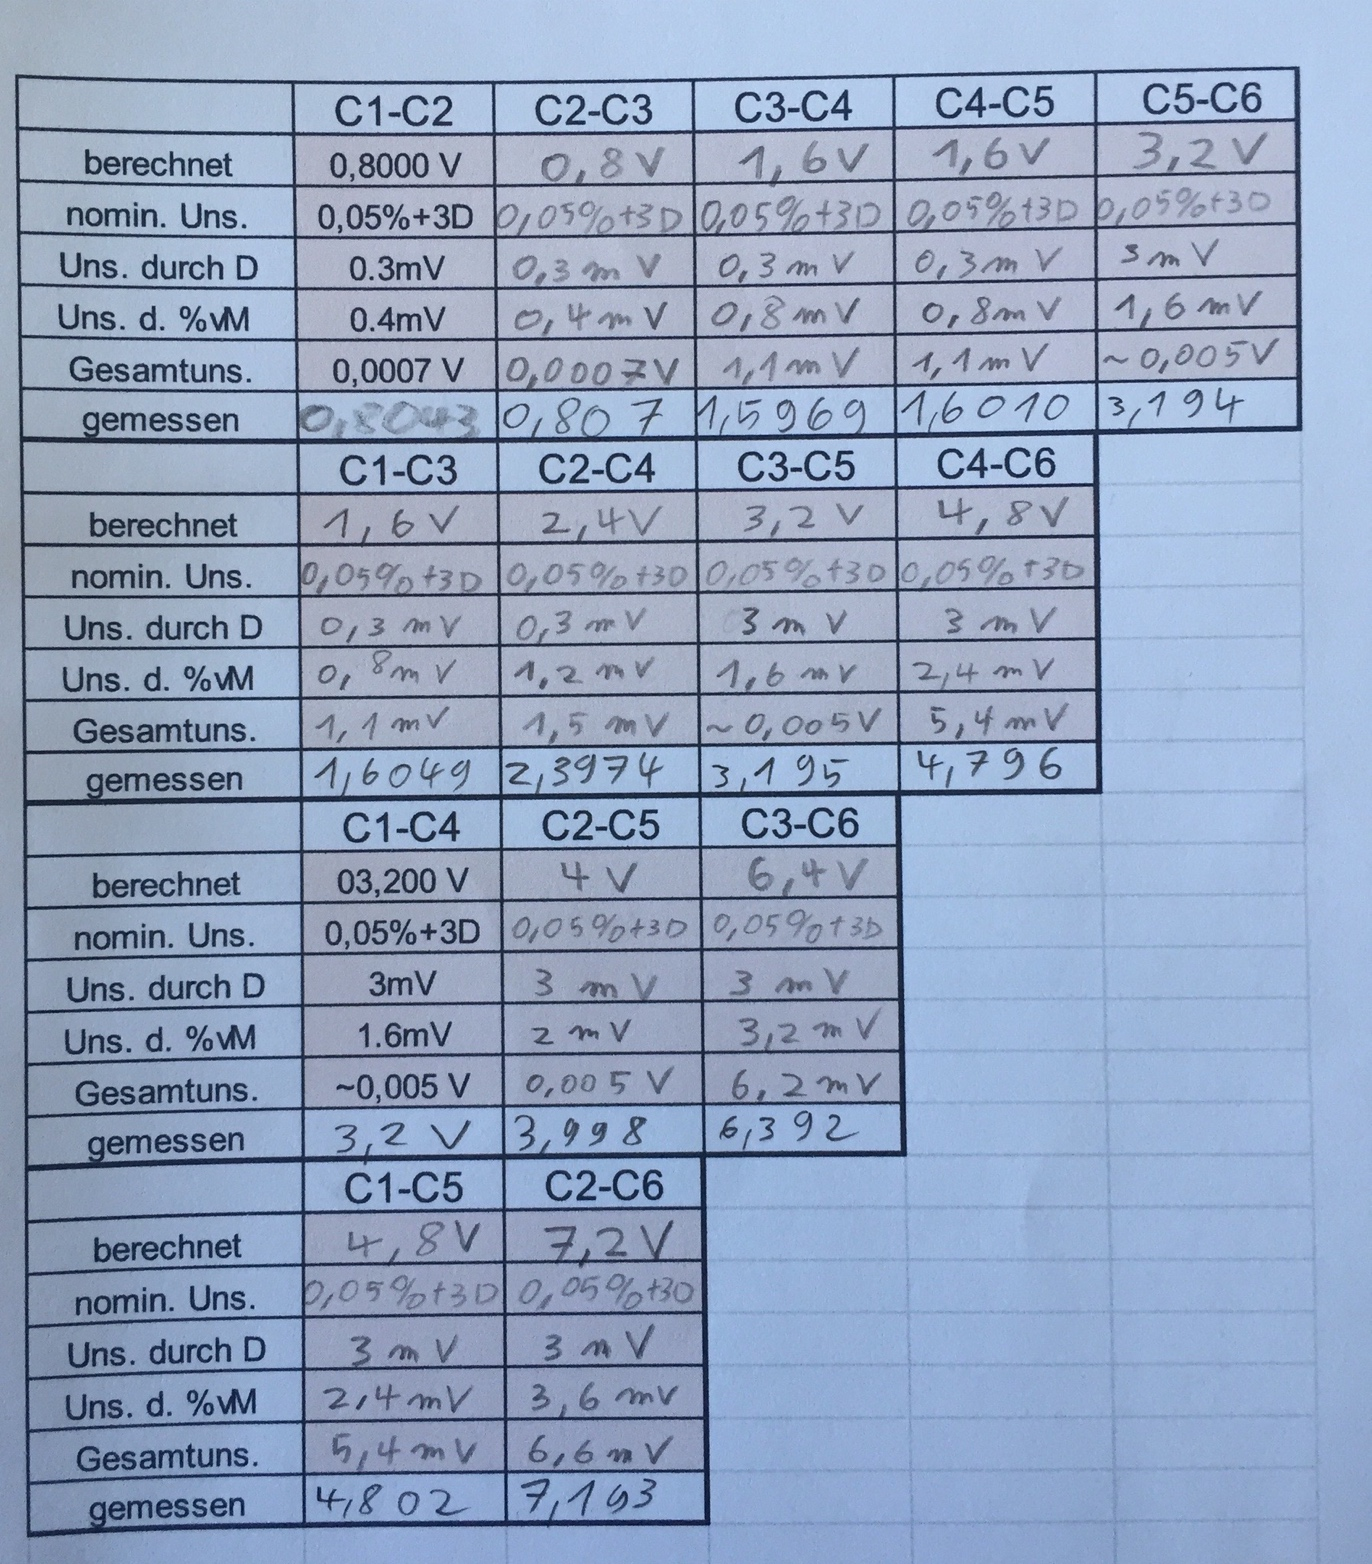 C1-C2 C2-C3 C3-C4 C4-C5 C5-C6
berechnet 0,8000 V 0,8 V 1,6 V 1,6 V 3,2 V
nomin. Uns. 0,05%+3D 0,05%+3D 0,05%+3D 0,05%+3D 0,05%+3D
Uns. durch D 0.3mV 0,3 mV 0,3 mV 0,3 mV 3 mV
Uns. d. %vM 0.4mV 0,4 mV 0,8 mV 0,8 mV 1,6 mV
Gesamtuns. 0,0007 V 0,0007V 1,1 mV 1,1 mV ~0,005V
gemessen 0,8043 0,807 1,5969 1,6010 3,194
C1-C3 C2-C4 C3-C5 C4-C6
berechnet 1,6 V 2,4V 3,2 V 4,8V
nomin. Uns. 0,05%+3D 0,05%+3D 0,05%+3D 0,05%+3D
Uns. durch D 0,3 mV 0,3 mV 3 mV 3 mV
Uns. d. %vM 0,8mV 1,2 mV 1,6 mV 2,4 mV
Gesamtuns. 1,1 mV 1,5 mV ~0,005V 5,4 mV
gemessen 1,6049 2,3974 3,195 4,796
C1-C4 C2-C5 C3-C6
berechnet 03,200 V 4 V 6,4 V
nomin. Uns. 0,05%+3D 0,05%+3D 0,05%+3D
Uns. durch D 3mV 3 mV 3 mV
Uns. d. %vM 1.6mV 2 mV 3,2 mV
Gesamtuns. ~0,005 V 0,005 V 6,2 mV
gemessen 3,2 V 3,998 6,392
C1-C5 C2-C6
berechnet 4,8V 7,2V
nomin. Uns. 0,05%+3D 0,05%+3D
Uns. durch D 3 mV 3 mV
Uns. d. %vM 2,4 mV 3,6 mV
Gesamtuns. 5,4 mV 6,6 mV
gemessen 4,802 7,193